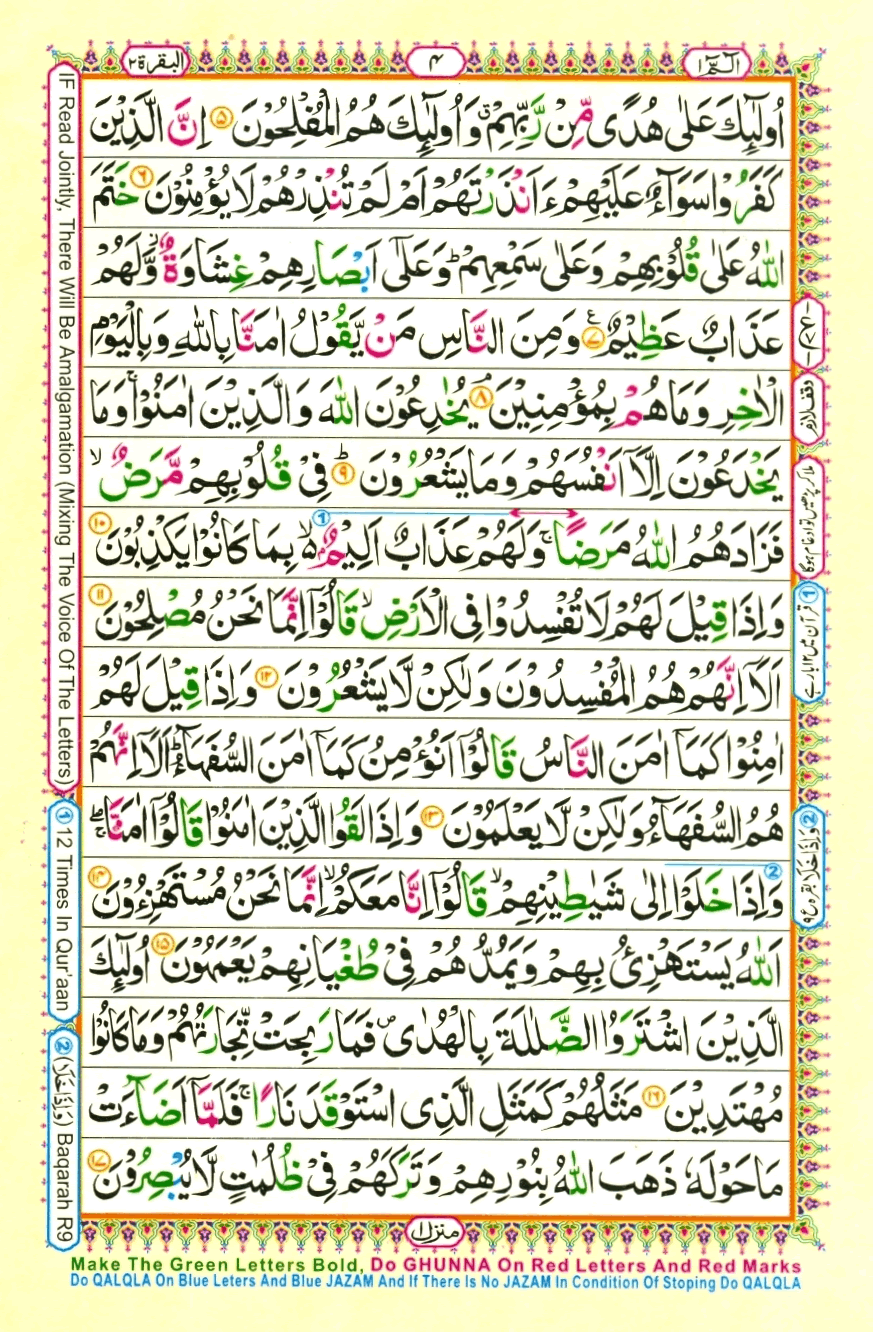 البقرة ٢
٤
الٓمّٓ ١
اُولٰٓئِكَ عَلٰى هُدًى مِّنْ رَّبِّهِمْ ۗ وَاُولٰٓئِكَ هُمُ الْمُفْلِحُوْنَ ۵ اِنَّ الَّذِيْنَ
كَفَرُوْا سَوَآءٌ عَلَيْهِمْ ءَاَنْذَرْتَهُمْ اَمْ لَمْ تُنْذِرْهُمْ لَا يُؤْمِنُوْنَ ۶ خَتَمَ
اللّٰهُ عَلٰى قُلُوْبِهِمْ وَعَلٰى سَمْعِهِمْ ؕ وَعَلٰٓى اَبْصَارِهِمْ غِشَاوَةٌ ؗ وَّلَهُمْ
عَذَابٌ عَظِيْمٌ ۷ وَمِنَ النَّاسِ مَنْ يَّقُوْلُ اٰمَنَّا بِاللّٰهِ وَبِالْيَوْمِ
الْاٰخِرِ وَمَا هُمْ بِمُؤْمِنِيْنَ ۘ ۸ يُخٰدِعُوْنَ اللّٰهَ وَالَّذِيْنَ اٰمَنُوْا ۚ وَمَا
يَخْدَعُوْنَ اِلَّاۤ اَنْفُسَهُمْ وَمَا يَشْعُرُوْنَ ؕ ۹ فِيْ قُلُوْبِهِمْ مَّرَضٌ ۙ
فَزَادَهُمُ اللّٰهُ مَرَضًا ۚ وَلَهُمْ عَذَابٌ اَلِيْمٌۢ ۙ۬ بِمَا كَانُوْا يَكْذِبُوْنَ ۱۰
وَاِذَا قِيْلَ لَهُمْ لَا تُفْسِدُوْا فِى الْاَرْضِ ۙ قَالُوْۤا اِنَّمَا نَحْنُ مُصْلِحُوْنَ ۱۱
اَلَاۤ اِنَّهُمْ هُمُ الْمُفْسِدُوْنَ وَلٰكِنْ لَّا يَشْعُرُوْنَ ۱۲ وَاِذَا قِيْلَ لَهُمْ
اٰمِنُوْا كَمَاۤ اٰمَنَ النَّاسُ قَالُوْۤا اَنُؤْمِنُ كَمَاۤ اٰمَنَ السُّفَهَآءُ ؕ اَلَاۤ اِنَّهُمْ
هُمُ السُّفَهَآءُ وَلٰكِنْ لَّا يَعْلَمُوْنَ ۱۳ وَاِذَا لَقُوا الَّذِيْنَ اٰمَنُوْا قَالُوْۤا اٰمَنَّا ۖۚ
وَاِذَا خَلَوْا اِلٰى شَيٰطِيْنِهِمْ ۙ قَالُوْۤا اِنَّا مَعَكُمْ ۙ اِنَّمَا نَحْنُ مُسْتَهْزِءُوْنَ ۱۴
اَللّٰهُ يَسْتَهْزِئُ بِهِمْ وَيَمُدُّهُمْ فِيْ طُغْيَانِهِمْ يَعْمَهُوْنَ ۱۵ اُولٰٓئِكَ
الَّذِيْنَ اشْتَرَوُا الضَّلٰلَةَ بِالْهُدٰى ۪ فَمَا رَبِحَتْ تِّجَارَتُهُمْ وَمَا كَانُوْا
مُهْتَدِيْنَ ۱۶ مَثَلُهُمْ كَمَثَلِ الَّذِى اسْتَوْقَدَ نَارًا ۚ فَلَمَّاۤ اَضَآءَتْ
مَا حَوْلَهٗ ذَهَبَ اللّٰهُ بِنُوْرِهِمْ وَتَرَكَهُمْ فِيْ ظُلُمٰتٍ لَّا يُبْصِرُوْنَ ۱۷
منزل ١
وقف لازم
ملا کر پڑھیں تو ادغام ہوگا
① قرآن میں ۱۲ بار ہے
② وَاِذَا خَلَا بقرہ ع ۹
IF Read Jointly, There Will Be Amalgamation (Mixing The Voice Of The Letters)
① 12 Times In Qur'aan
② (وَاِذَا خَلَا) Baqarah R9
Make The Green Letters Bold, Do GHUNNA On Red Letters And Red Marks
Do QALQLA On Blue Leters And Blue JAZAM And If There Is No JAZAM In Condition Of Stoping Do QALQLA